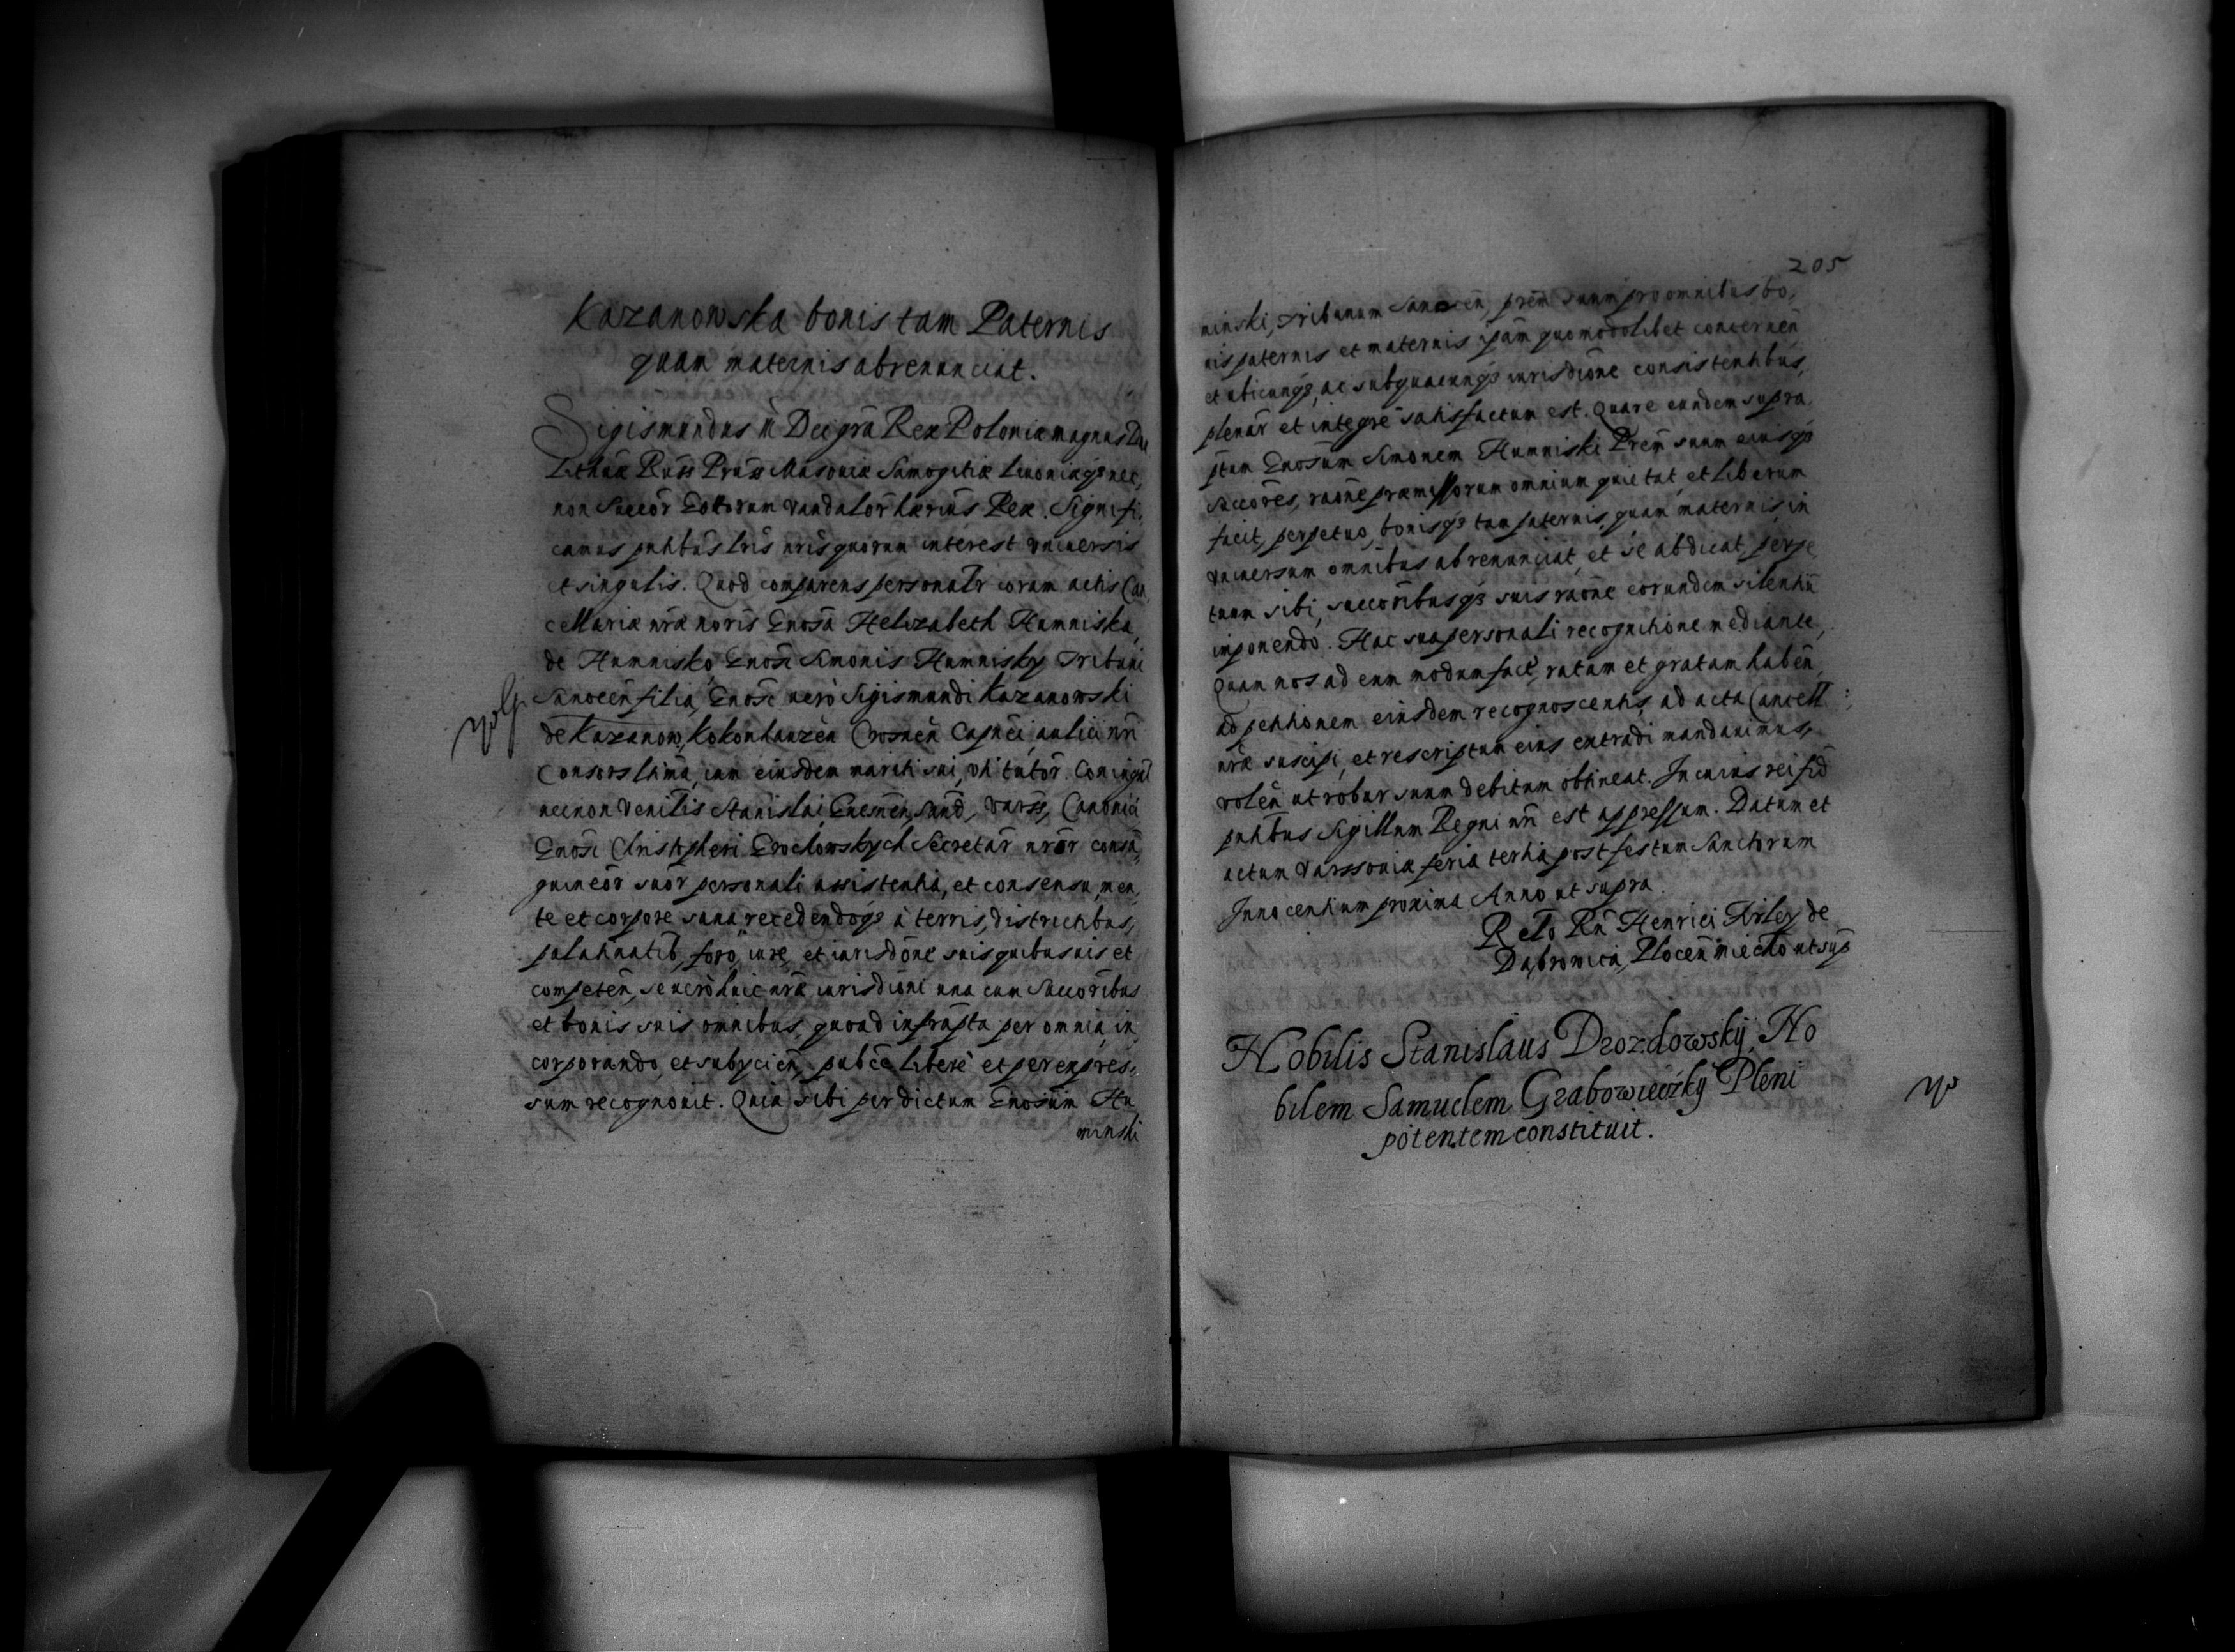 Kazanowska bonis tam Paternis
quam maternis abrenunciat.
Sigismundus III Dei grã Rex Poloniæ magnus Dux
Lithuæ Russ Pruss Masoviæ Samogitiæ Livoniæq3 nec,
non Succor Gottorum Vandalor̃ hæriũs Rex. Signifi,
camus pñtibus lris nris quorum interest vniuersis
et singulis. Quod comparens personalr coram actis Can,
cellariæ nræ noris Gnosa Helizabeth Humniska,
de Humnisko, Gnosi Simonis Humnisky Tribuni
Sanocen̄ filia, Gnosi uerò Sigismundi Kazanowski
de Kazanow, Kokonhauzen̄ Crosnen̄ Capnei, aulici nri
Consors ltima, cum eiusdem mariti sui, vti tutor̃. Coniugal
necnon Venĩlis Stanislai, Gnesnen, Sand, Vars, Canonici
Gnosi Christopheri Grochowskych Secretar̃ nror̃ consã,
guineor̃ suor̃ personali assistentia, et consensu, men,
te et corpore sana recedendoq3 à terris, districtibus,
palatinatib, foro, iure, et iurisdõne suis quibusuis et
competen̄, se uerò huic nræ iurisdioni una cum Succorĩbus
et bonis suis omnibus, quoad infrapta per omnia, in,
corporando, et subycien̄, publce liberè et per expres,
sum recognouit. Quia sibi per dictum Gnosum Hu,
mnski
205
ninski, Tribunum Sanocen̄, prẽm suum pro omnibus bo,
nis paternis et maternis ipãm quomodolibet concernen̄
et ubicunq3, ac subquacunq3 iurisdione consistentibus,
plenar̃ et integre satisfactum est. Quare eundem supra
ptum Gnosum Simonem Humniski Prem suum eiusq3
succores, raone præmissorum omnium quietat, et liberum
facit, perpetuo, bonisq3 tam paternis, quam maternis, in
vniuersum omnibus abrenunciat, et se abdicat, perpe,
tuum sibi, succoribusq3 suis raone eorundem silentiũ
imponendo. Hac sua personali recognitione mediante,
Quam nos ad eum modum factã, ratam et gratam haben̄,
ad petitionem eiusdem recognoscentis, ad acta Cancell:
nræ suscipi, et rescriptum eius extradi mandauimus,
volen̄ ut robur suum debitum obtineat. In cuius rei fid
pñtibus Sigillum Regni nri est appressum. Datum et
actum Varssoviæ feria tertia post festum Sanctorum
Innocentium proxima Anno ut supra.
Relo Rn̄ Henrici Firley de
Dąbrowica, Plocen̄ miechõ ut sup
Nobilis Stanislaus Drozdowskÿ, No
bilem Samuelem Grabowieczkÿ Pleni
potentem constituit.